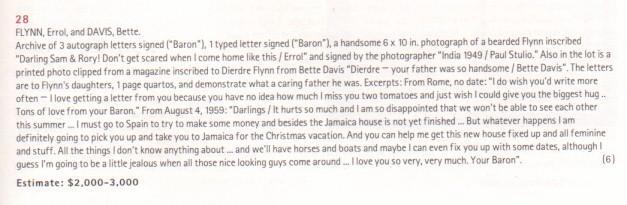 28
FLYNN, Errol, and DAVIS, Bette.
Archive of 3 autograph letters signed ("Baron"), 1 typed letter signed ("Baron"), a handsome 6 x 10 in. photograph of a bearded Flynn inscribed
"Darling Sam & Rory! Don't get scared when I come home like this / Errol" and signed by the photographer "India 1949 / Paul Stulio." Also in the lot is a
printed photo clipped from a magazine inscribed to Dierdre Flynn from Bette Davis "Dierdre — your father was so handsome / Bette Davis". The letters
are to Flynn's daughters, 1 page quartos, and demonstrate what a caring father he was. Excerpts: From Rome, no date: "I do wish you'd write more
often — I love getting a letter from you because you have no idea how much I miss you two tomatoes and just wish I could give you the biggest hug ..
Tons of love from your Baron." From August 4, 1959: "Darlings / It hurts so much and I am so disappointed that we won't be able to see each other
this summer ... I must go to Spain to try to make some money and besides the Jamaica house is not yet finished ... But whatever happens I am
definitely going to pick you up and take you to Jamaica for the Christmas vacation. And you can help me get this new house fixed up and all feminine
and stuff. All the things I don't know anything about ... and we'll have horses and boats and maybe I can even fix you up with some dates, although I
guess I'm going to be a little jealous when all those nice looking guys come around ... I love you so very, very much. Your Baron". (6)
Estimate: $2,000-3,000